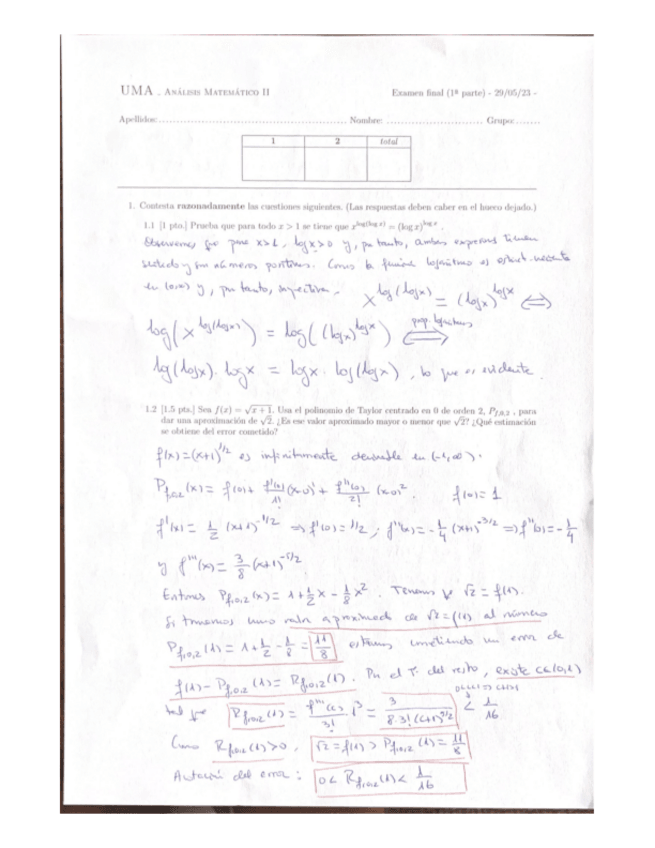 UMA . ANÁLISIS MATEMÁTICO II Examen final (1ª parte) - 29/05/23 -
Apellidos: Nombre: Grupo:
1 2 total
1. Contesta razonadamente las cuestiones siguientes. (Las respuestas deben caber en el hueco dejado.)
1.1 [1 pto.] Prueba que para todo x > 1 se tiene que x^{log(log x)} = (log x)^{log x}.
Observemos que para x>1, log x>0 y, por tanto, ambas expresiones tienen
sentido y son números positivos. Como la función logaritmo es estrict. creciente
en (0,∞) y, por tanto, inyectiva, x^{log(log x)} = (log x)^{log x} ⟺
log(x^{log(log x)}) = log((log x)^{log x}) ⟺ prop. logaritmos
log(log x). log x = log x . log(log x), lo que es evidente.
1.2 [1.5 pts.] Sea f(x) = √x+1. Usa el polinomio de Taylor centrado en 0 de orden 2, P_{f,0,2}, para
dar una aproximación de √2. ¿Es ese valor aproximado mayor o menor que √2? ¿Qué estimación
se obtiene del error cometido?
f(x)=(x+1)^{1/2} es infinitamente derivable en (-1,∞).
P_{f,0,2}(x) = f(0)+ f'(0)/1! (x-0)^1 + f''(0)/2! (x-0)^2. f(0)=1
f'(x)= 1/2 (x+1)^{-1/2} ⇒ f'(0)=1/2 ; f''(x)=-1/4 (x+1)^{-3/2} ⇒ f''(0)=-1/4
y f'''(x)= 3/8 (x+1)^{-5/2}
Entonces P_{f,0,2}(x)= 1+1/2 x - 1/8 x^2. Tenemos √2 = f(1).
Si tomamos como valor aproximado de √2=f(1) al número
P_{f,0,2}(1)= 1+1/2 - 1/8 = 11/8 estamos cometiendo un error de
f(1)-P_{f,0,2}(1)= R_{f,0,2}(1). Por el T. del resto, existe c∈(0,1)
tal que R_{f,0,2}(1) = f'''(c)/3! 1^3 = 3/(8·3!(c+1)^{5/2}) < 1/16
Como R_{f,0,2}(1)>0, √2=f(1) > P_{f,0,2}(1)= 11/8
Acotación del error: 0< R_{f,0,2}(1)< 1/16